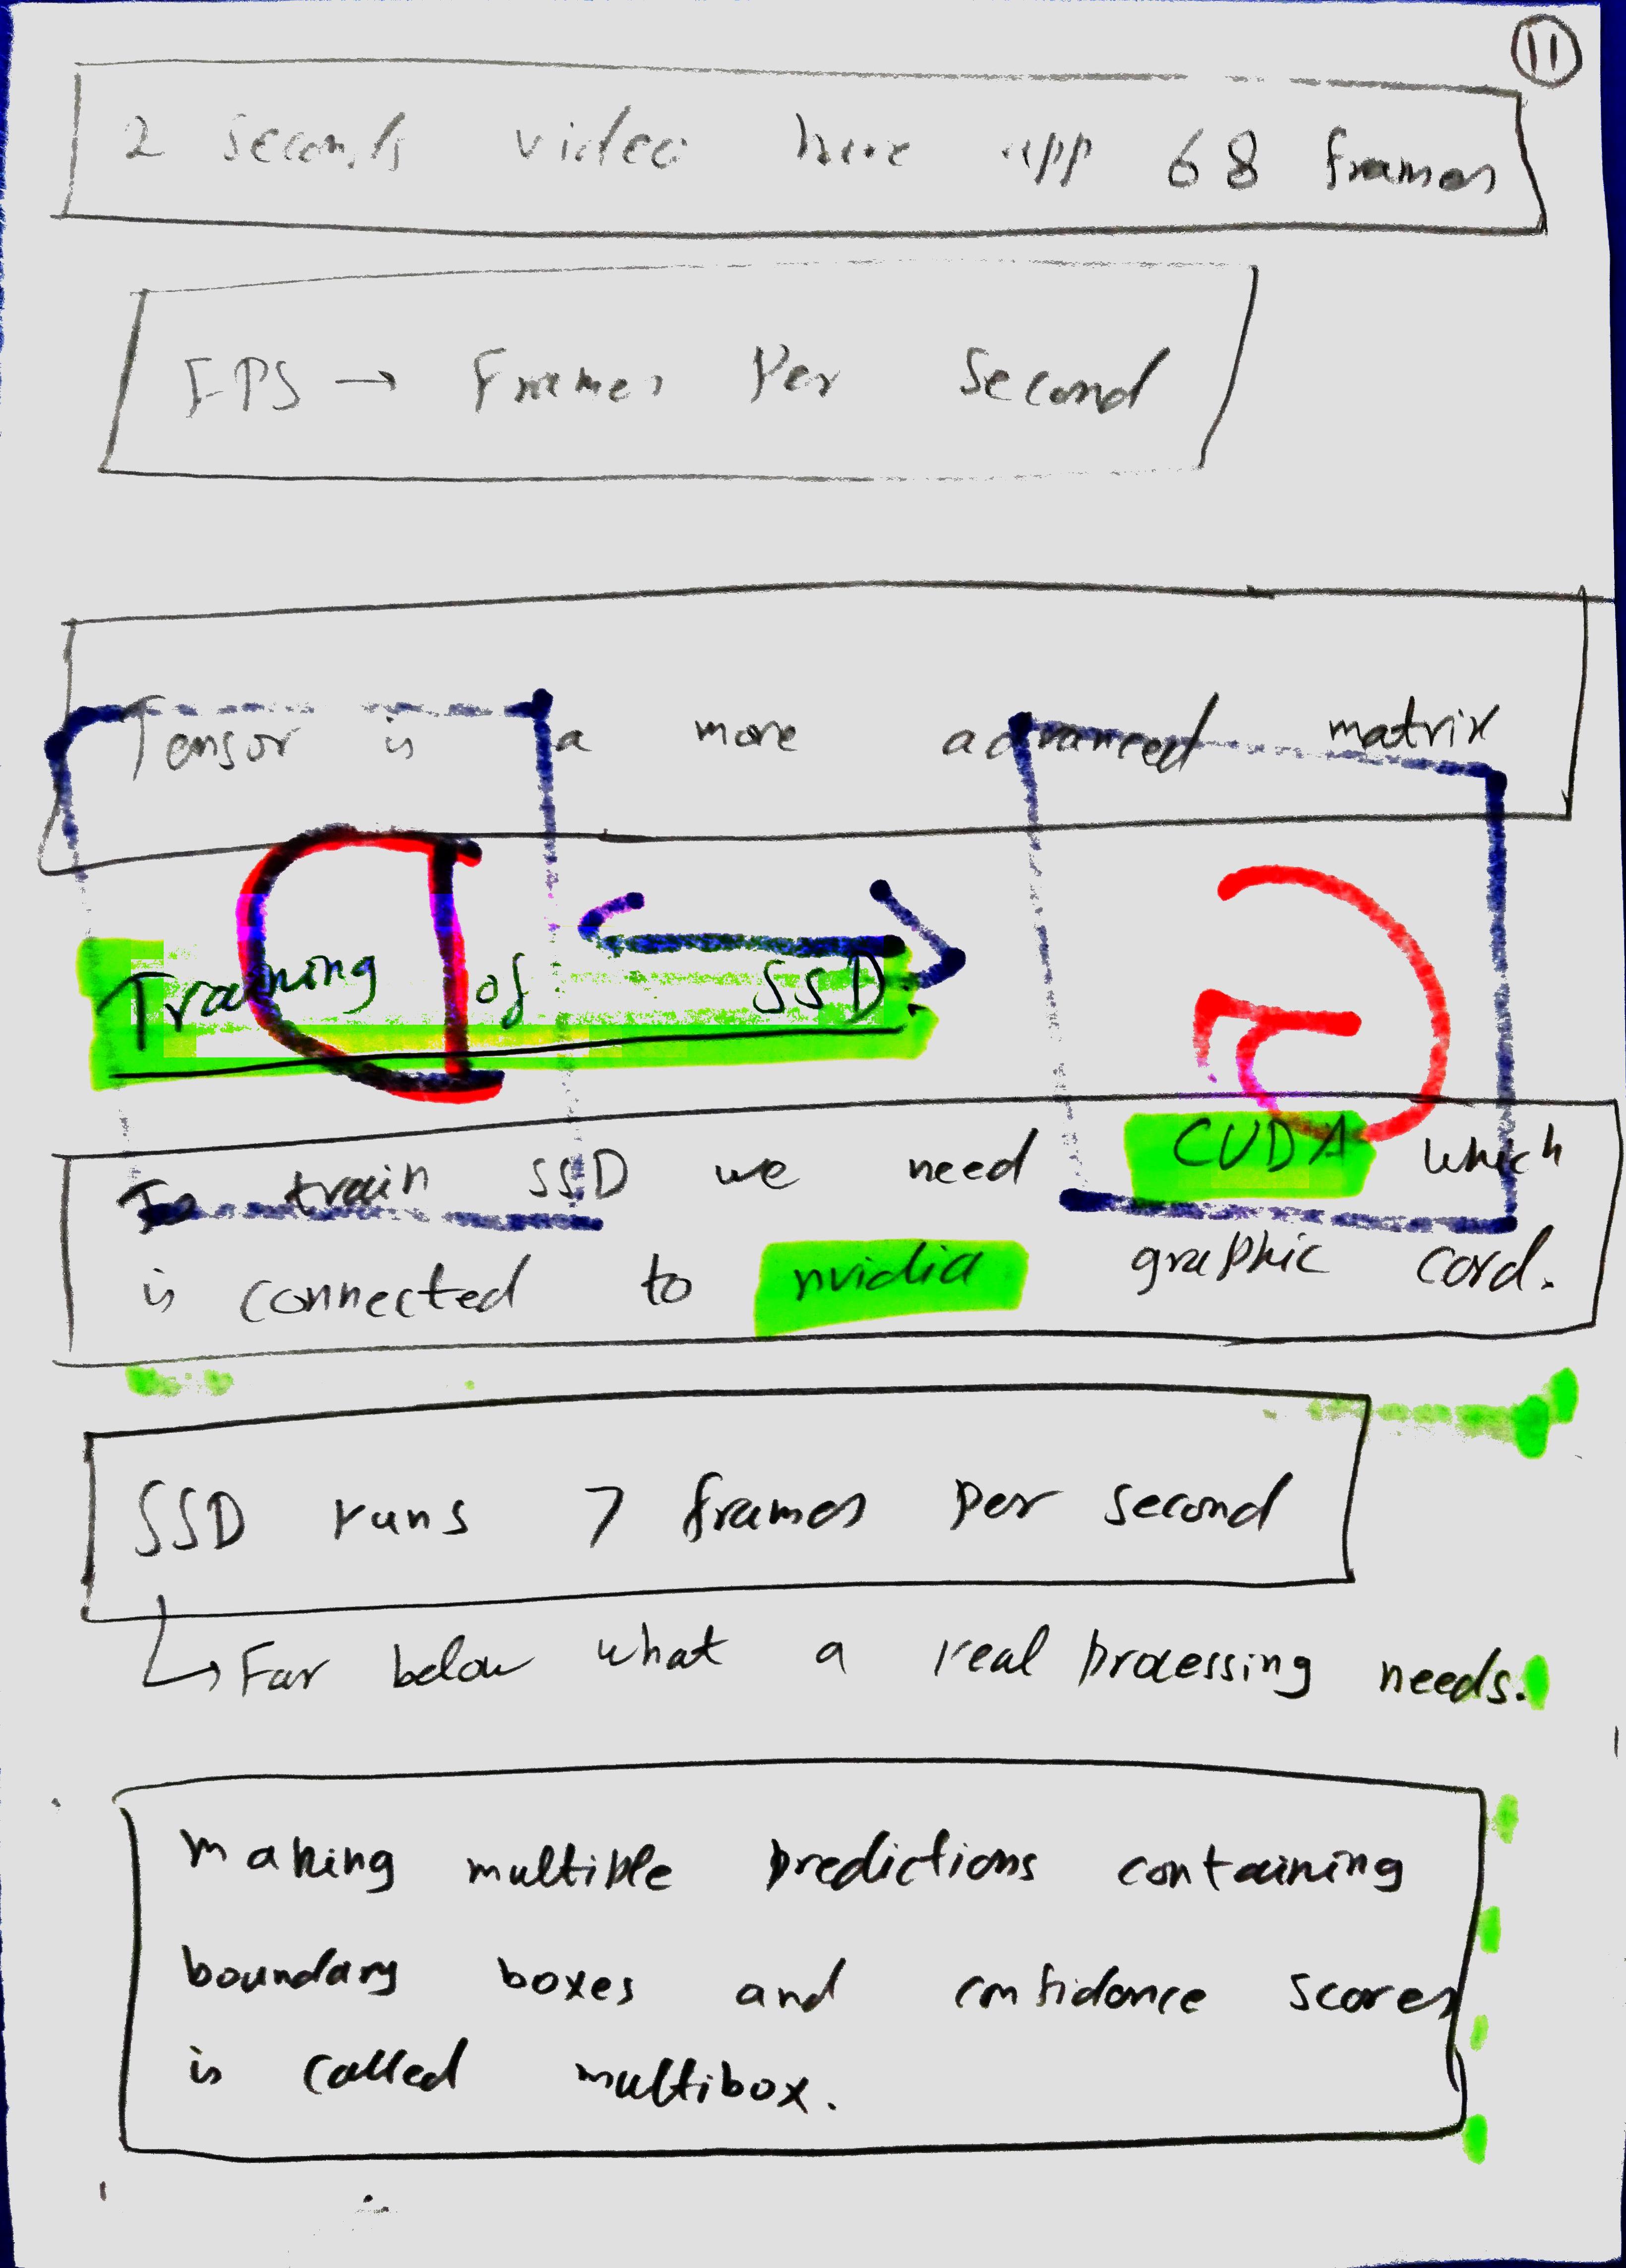 11
2 seconds video have app 68 frames
FPS → Frames Per Second
Tensor is a more advanced matrix
Training of SSD.
To train SSD we need CUDA which
is connected to nvidia graphic card.
SSD runs 7 frames per second
↳ Far below what a real processing needs.
making multiple predictions containing
boundary boxes and confidence scores
is called multibox.